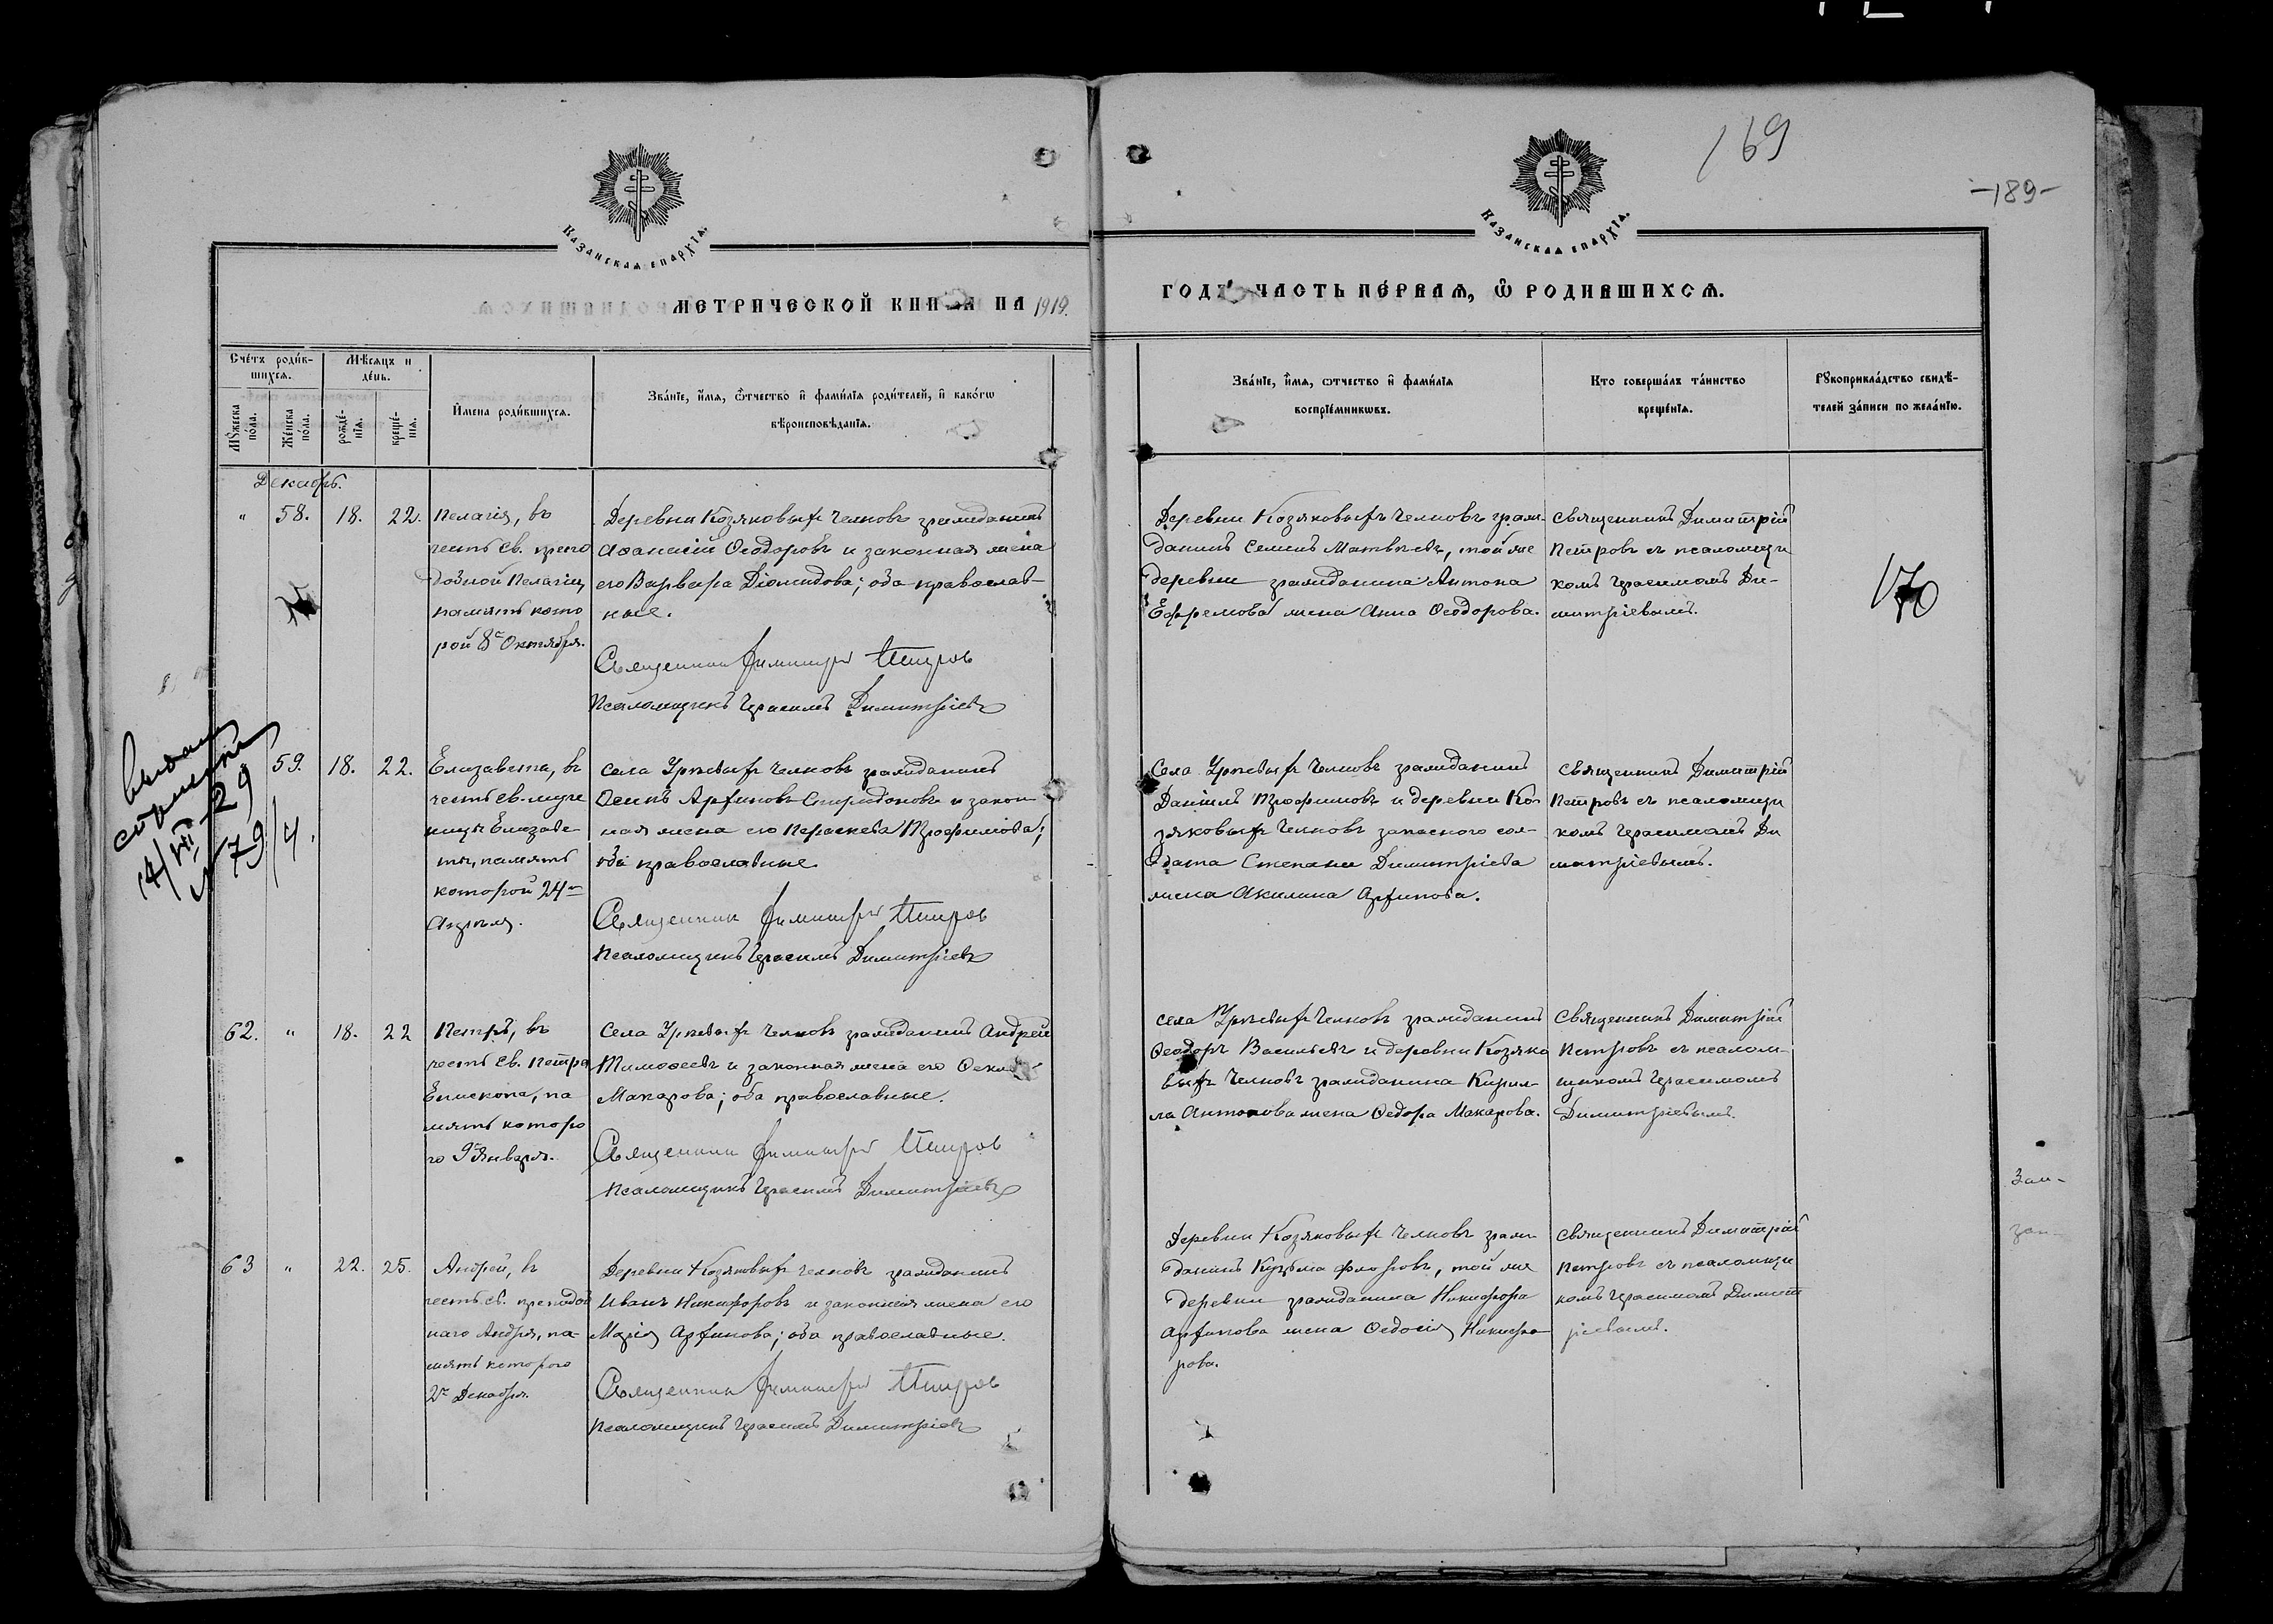 169
-189-
Казанская епархїѧ.
Казанская епархїѧ.
МЕТРИЧЕСКОЙ КНИГИ НА 1919.
ГОДЪ ЧАСТЬ ПЕ́РВАѦ, Ѿ РОДИВШИХСѦ.
Сче́тъ роди́в-
шихсѧ.
Мѣ́сѧцъ и
де́нь.
Мꙋ́жеска
по́ла.
Же́нска
по́ла.
рожде́-
нїѧ.
креще́-
нїѧ.
И҆мена роди́вшихсѧ.
Зва́нїе, и҆́мѧ, ѻ҆́тчество и҆ фами́лїѧ роди́телей, и҆ како́гѡ
вѣроисповѣ́данїѧ.
Зва́нїе, и҆́мѧ, ѻтчество и҆ фами́лїѧ
воспрїе́мникѡвъ.
Кто соверша́лъ та́инство
креще́нїѧ.
Рꙋкоприкла́дство свидѣ́-
телей за́писи по жела́нїю.
Декабрь.
„ 58. 18. 22.
Пелагія, въ
честь св. препо
добной Пелагіи,
память кото
рой 8го Октября.
Деревни Козяковыхъ Челновъ гражданинъ
Аѳанасій Ѳеодоровъ и законная жена
его Варвара Діомидова; оба православ-
ные.
Священник Димитрий Петров
Псаломщикъ Герасимъ Димитріевъ
Деревни Козяковыхъ Челновъ граж-
данинъ Семенъ Матвѣевъ, той же
деревни гражданина Антона
Ефремова жена Анна Ѳеодорова.
Священникъ Димитрій
Петровъ съ псаломщи
комъ Герасимомъ Ди-
митріевымъ.
170
59. 18. 22.
Елизавета, въ
честь св. муче
ницы Елизаве-
ты, память
которой 24го
Апрѣля.
Села Урѣевыхъ Челновъ гражданинъ
Осипъ Архиповъ Спиридоновъ и закон
ная жена его Параскева Трофимова;
оба православные.
Священник Димитрий Петров
Псаломщикъ Герасимъ Димитріевъ
Села Урѣевыхъ Челновъ гражданинъ
Даніилъ Трофимовъ и деревни Ко-
зяковыхъ Челновъ запасного сол-
дата Степана Димитріева
жена Акилина Архипова.
Священникъ Димитрій
Петровъ съ псаломщи
комъ Герасимомъ Ди
митріевымъ.
14/VII-29
№ 79/4.
62. „ 18. 22
Петръ, въ
честь св. Петра
Епископа, па
мять которо
го 9го Января.
Села Урѣевыхъ Челновъ гражданинъ Андрей
Тимоѳеевъ и законная жена его
Макарова; оба православные.
Священник Димитрий Петров
Псаломщикъ Герасимъ Димитріевъ
Села Урѣевыхъ Челновъ гражданинъ
Ѳеодоръ Васильевъ и деревни Козяко
выхъ Челновъ гражданина Кирил-
ла Антонова жена Ѳедора Макарова.
Священникъ Димитрій
Петровъ съ псалом-
щикомъ Герасимомъ
Димитріевымъ.
63 „ 22. 25.
Андрей, въ
честь св. преподоб
наго Андрея, па-
мять котораго
2го Декабря.
Деревни Козяковыхъ Челновъ гражданинъ
Иванъ Никифоровъ и законная жена его
Марія Архипова; оба православные.
Священник Димитрий Петров
Псаломщикъ Герасимъ Димитріевъ
Деревни Козяковыхъ Челновъ граж-
данинъ Кузьма Флоровъ, той же
деревни гражданина Никифора
Архипова жена Ѳедосія Никифо-
рова.
Священникъ Димитрій
Петровъ съ псаломщи
комъ Герасимомъ Димит
ріевымъ.